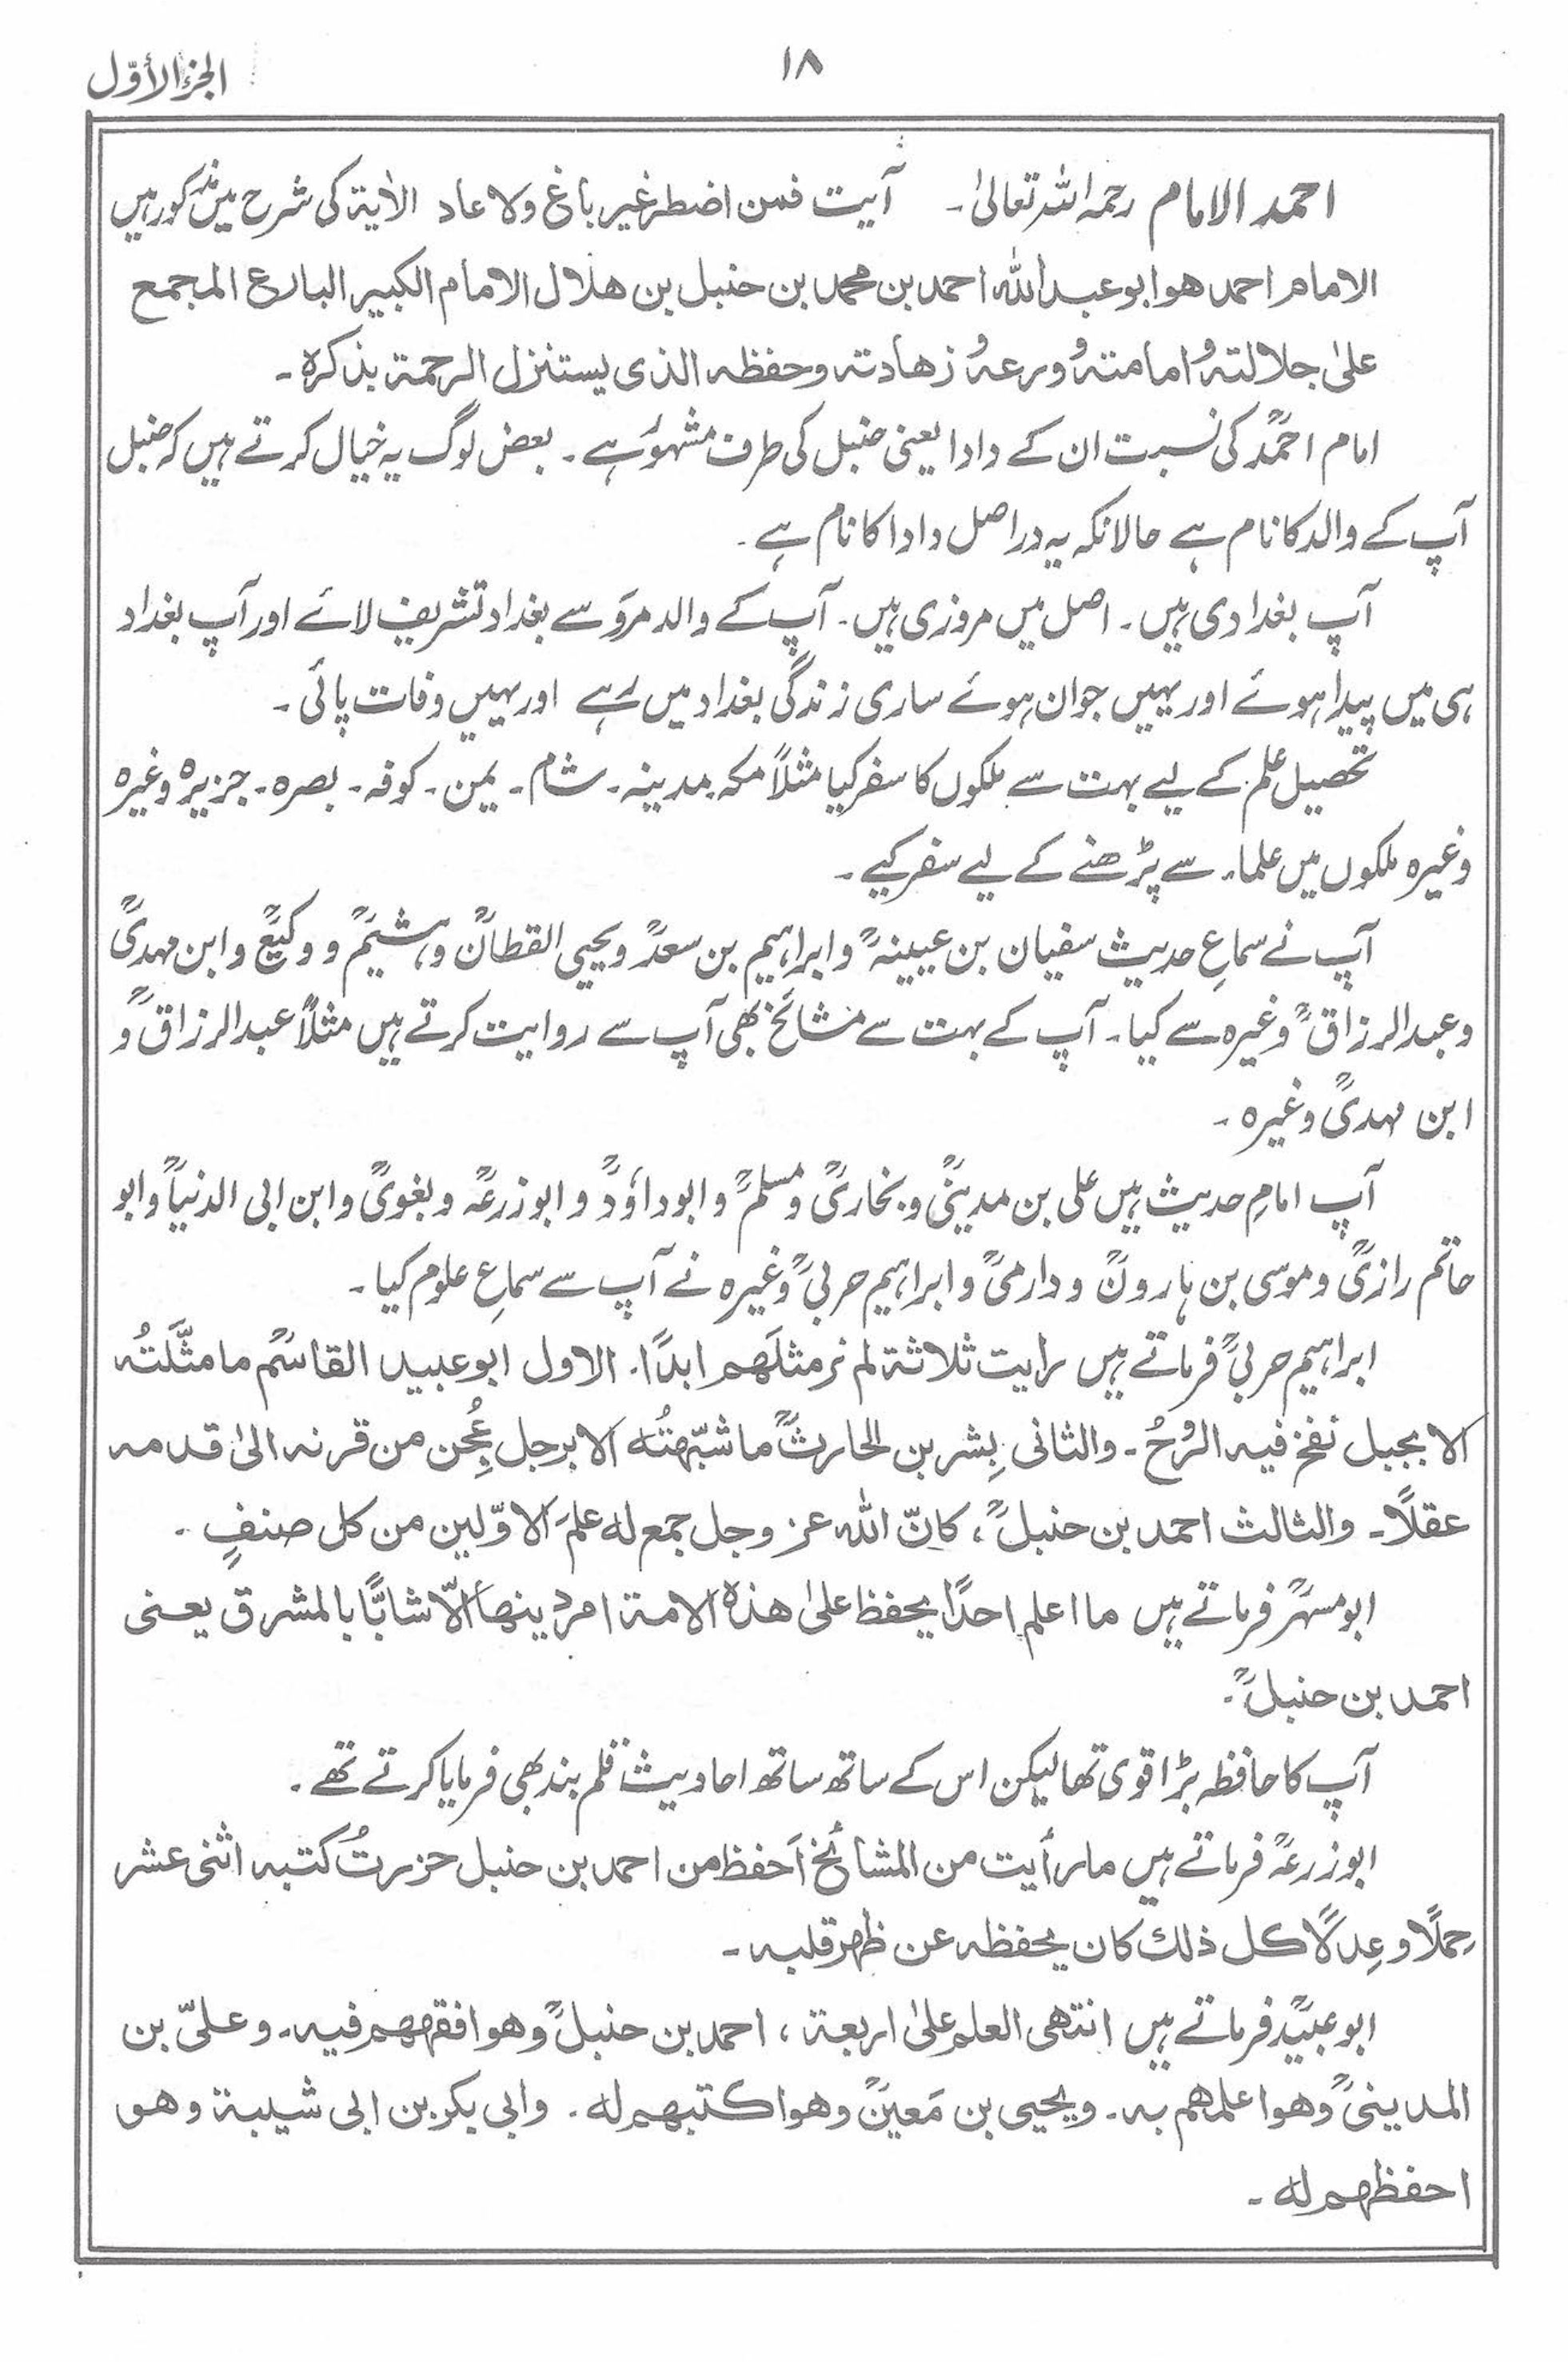 الجزء الأوّل
۱۸
احمد الامام رحمہ اللہ تعالیٰ۔ آیت فمن اضطر غیر باغ ولا عاد الاٰیۃ کی شرح میں مذکور ہیں
الامام احمد هو ابو عبد اللہ احمد بن محمد بن حنبل بن هلال الامام الكبير البارع المجمع
علیٰ جلالتہٖ وامامتہٖ وورعہٖ وزهادتہ وحفظہ الذی یستنزل الرحمۃ بذکرہ۔
امام احمدؒ کی نسبت ان کے دادا یعنی حنبل کی طرف مشہور ہے۔ بعض لوگ یہ خیال کرتے ہیں کہ حنبل
آپ کے والد کا نام ہے حالانکہ یہ دراصل دادا کا نام ہے۔
آپ بغدادی ہیں۔ اصل میں مروزی ہیں۔ آپ کے والد مرَو سے بغداد تشریف لائے اور آپ بغداد
ہی میں پیدا ہوئے اور یہیں جوان ہوئے ساری زندگی بغداد میں رہے اور یہیں وفات پائی۔
تحصیل علم کے لیے بہت سے ملکوں کا سفر کیا مثلاً مکہ۔ مدینہ۔ شام۔ یمن۔ کوفہ۔ بصرہ۔ جزیرہ وغیرہ
وغیرہ ملکوں میں علماء سے پڑھنے کے لیے سفر کیے۔
آپ نے سماعِ حدیث سفیان بن عیینہؒ و ابراہیم بن سعدؒ و یحیی القطانؒ و ہشیمؒ و وکیعؒ و ابن مہدیؒ
و عبدالرزاقؒ وغیرہ سے کیا۔ آپ کے بہت سے مشائخ بھی آپ سے روایت کرتے ہیں مثلاً عبدالرزاقؒ و
ابن مہدیؒ وغیرہ۔
آپ امامِ حدیث ہیں علی بن مدینیؒ و بخاریؒ و مسلمؒ و ابوداؤدؒ و ابوزرعہؒ و بغویؒ و ابن ابی الدنیاؒ و ابو
حاتم رازیؒ و موسی بن ہارونؒ و دارمیؒ و ابراہیم حربیؒ وغیرہ نے آپ سے سماعِ علوم کیا۔
ابراہیم حربیؒ فرماتے ہیں رایت ثلاثۃ لم نر مثلَهم ابدًا۔ الاول ابو عبید القاسمؒ ما مثَّلتُہ
الا بجبل نفخ فیہ الرُوحُ۔ والثانی بِشر بن الحارثؒ ما شبّهتُہ الا برجل عُجِن من قرنہ الیٰ قدمہ
عقلًا۔ والثالث احمد بن حنبلؒ، کانّ اللہ عز وجل جمع لہ علمَ الاوّلین من کل صنفٍ۔
ابو مسہرؒ فرماتے ہیں ما اعلم احدًا یحفظ علیٰ هذہ الامۃ امر دینها الّا شابًّا بالمشرق یعنی
احمد بن حنبلؒ۔
آپ کا حافظہ بڑا قوی تھا لیکن اس کے ساتھ ساتھ احادیث قلم بند بھی فرمایا کرتے تھے۔
ابوزرعہؒ فرماتے ہیں ما رأیت من المشائخ اَحفظ من احمد بن حنبل حزرتُ کتبہ اثنی عشر
حِملًا وعِدلًا کل ذلك کان یحفظہ عن ظهر قلبہ۔
ابو عبیدؒ فرماتے ہیں انتهی العلم علیٰ اربعۃ، احمد بن حنبلؒ وهو افقههم فیہ۔ وعلیّ بن
المدینیؒ وهو اعلمهم بہ۔ ویحیی بن مَعینؒ وهو اکتبهم لہ۔ وابی بکر بن ابی شیبۃ وهو
احفظهم لہ۔